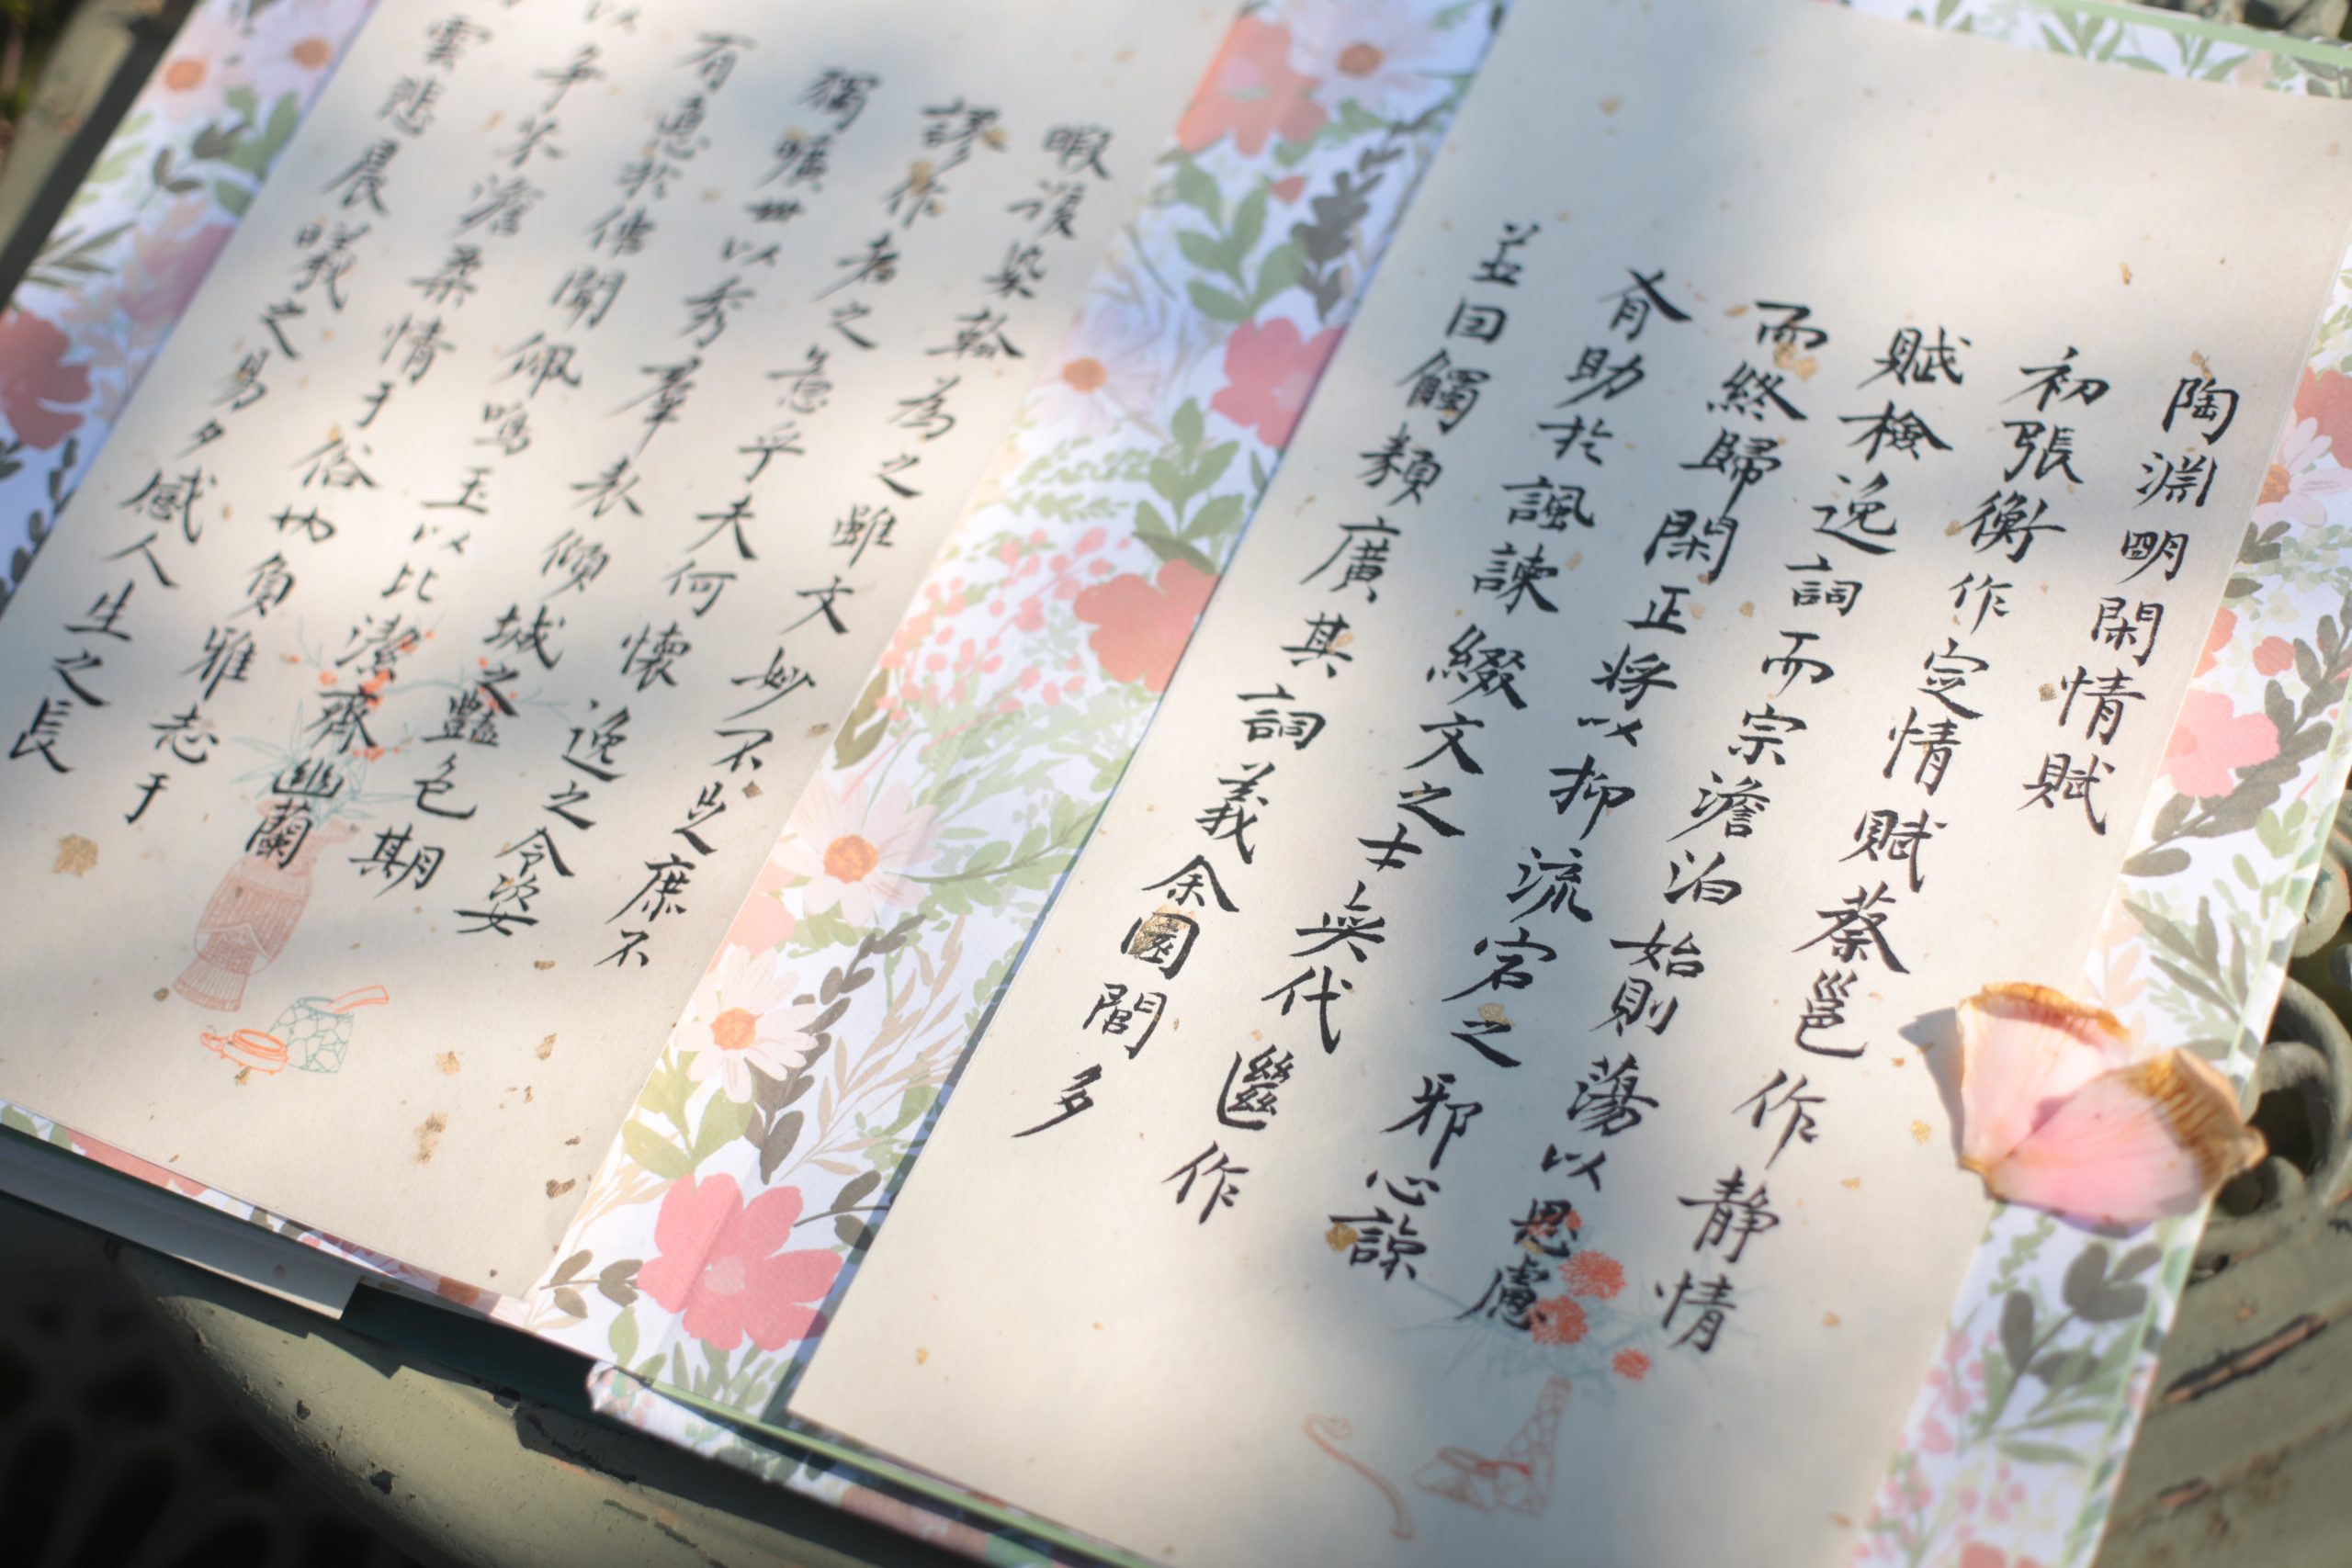 陶淵明閑情賦
初張衡作定情賦蔡邕作靜情
賦檢逸詞而宗澹泊始則蕩以思慮
而終歸閑正将以抑流宕之邪心諒
有助於諷諫綴文之士奕代繼作
並囙觸類廣其詞義余園閭多
暇復染翰為之雖文妙不足庶不
謬作者之意乎夫何懷逸之令姿
獨曠世以秀羣表傾城之豔色期
有悳於傳聞佩鳴玉以比潔齊幽蘭
以爭芬澹柔情于俗内負雅志于
雲悲晨曦之易夕感人生之長